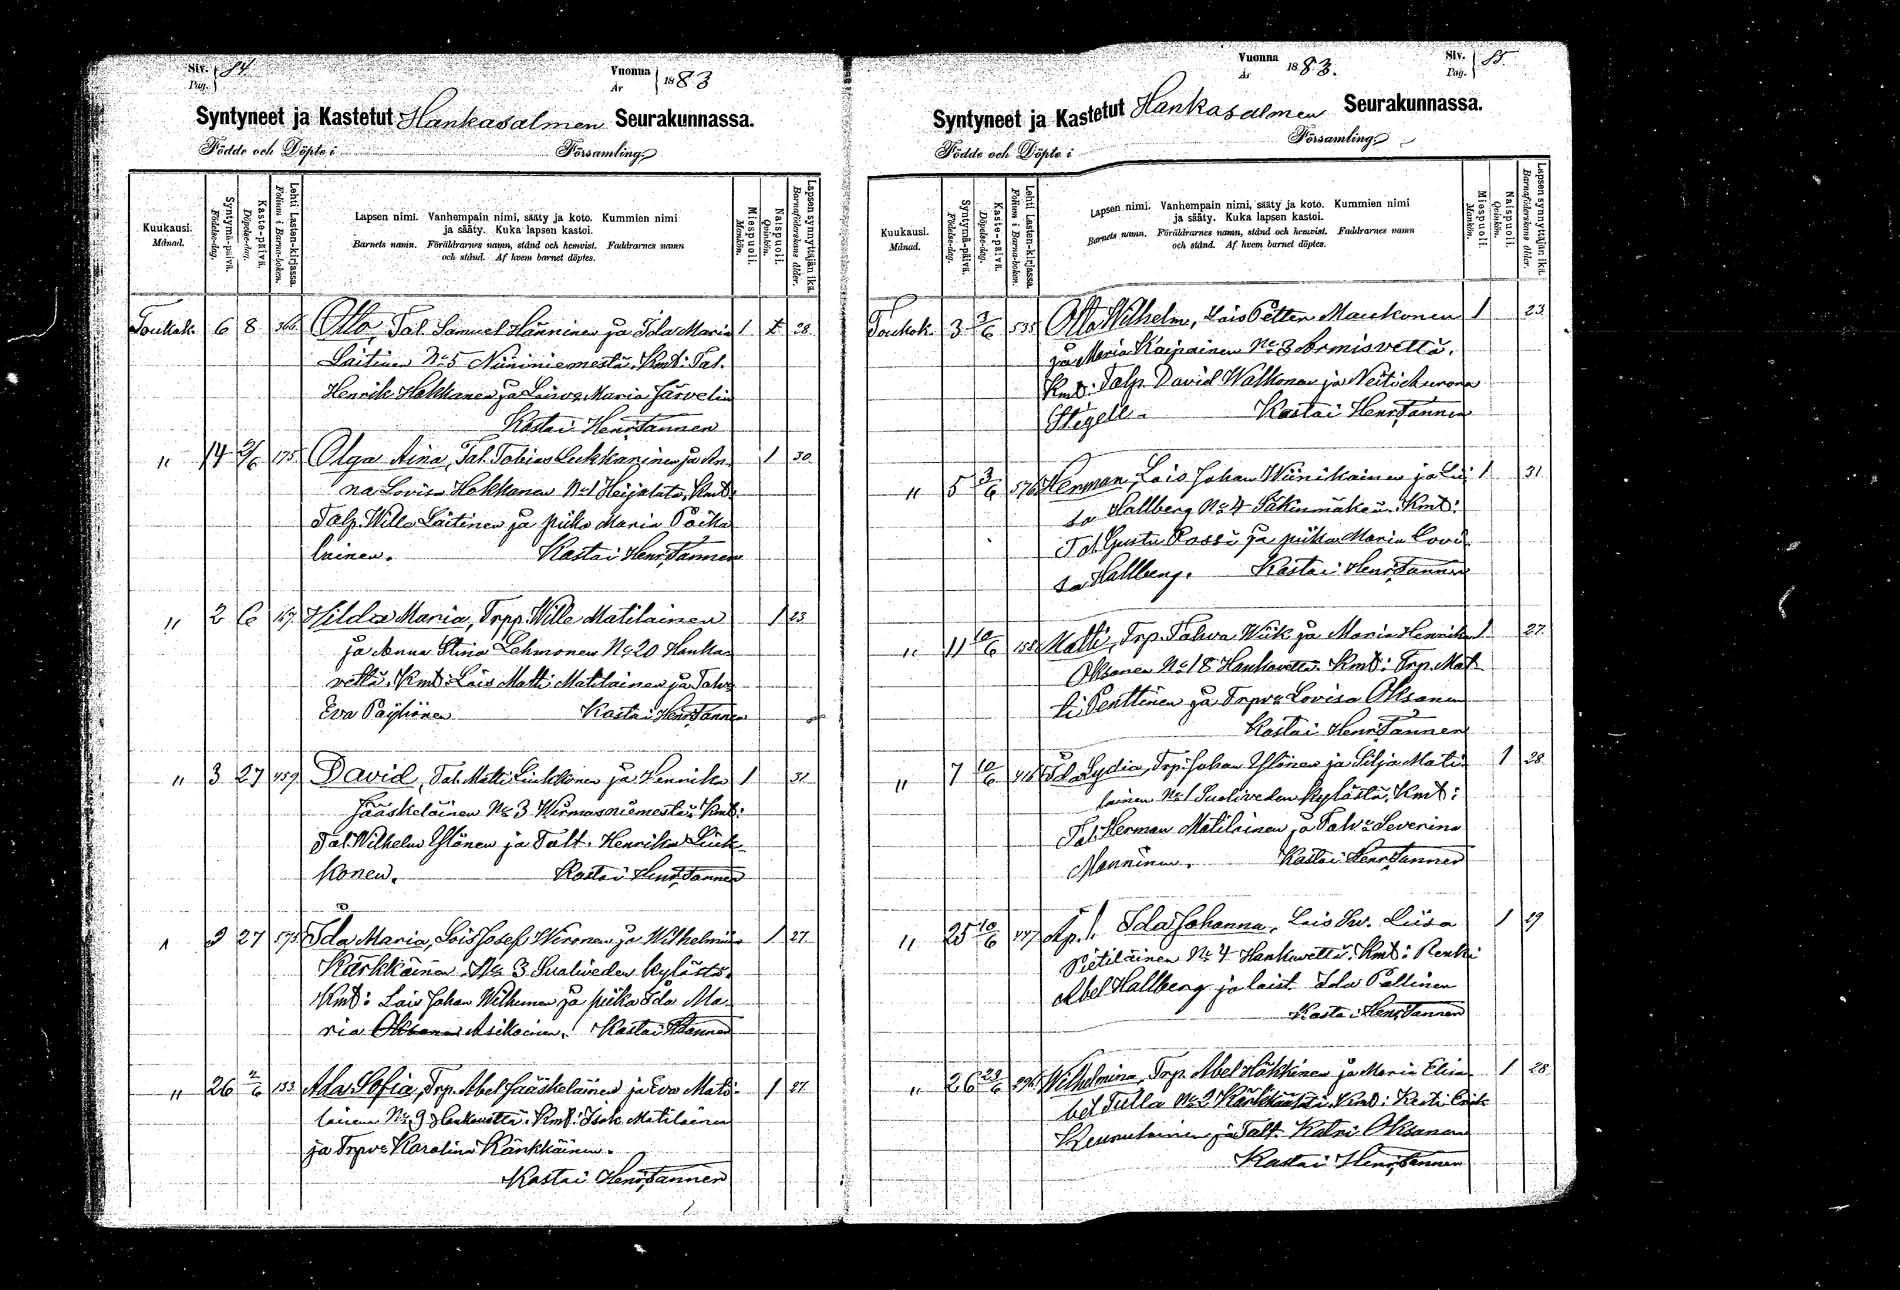 Siv. Pag. 84
Vuonna År 1883
Syntyneet ja Kastetut Hankasalmen Seurakunnassa.
Födde och Döpte i Församling
Kuukausi. Månad.
Syntymä-päivä. Födelse-dag.
Kaste-päivä. Döpelse-dag.
Lehti Lasten-kirjassa. Folium i Barna-boken.
Lapsen nimi. Vanhempain nimi, sääty ja koto. Kummien nimi
ja sääty. Kuka lapsen kastoi.
Barnets namn. Föräldrarnes namn, stånd och hemvist. Faddrarnes namn
och stånd. Af hvem barnet döptes.
Miespuoli. Mankön.
Naispuoli. Qvinkön.
Lapsen synnyttäjän ikä. Barnaföderskans ålder.
Toukok. 6 8 Otto, Tal. Samuel Hänninen ja Ida Maria 1 28
Laitinen No 5 Niininiemestä. Kmt: Tal.
Henrik Hokkanen ja Maria Järvelin
Kastoi Henr. Tannen
" 14 2/6 175 Olga Aina, Tal. Tobias Leskkaninen ja An- 1 30
na Lovisa Hokkanen No 1 Kmt:
Talp. Wille Laitinen ja piika Maria Poika
lainen. Kastoi Henr. Tannen
" 2 6 Hilda Maria, Trpp. Wille Matilainen 1 23
ja Anna Stina Lehmonen No 20 Hanka-
vettä. Kmt: Lois Matti Matilainen ja Talv:
Eva Kastoi Henr. Tannen
" 3 27 459 David, Tal. Matti Liukkonen ja Henrika 1 31
Jääskeläinen No 3 Kmt:
Tal. Wilhelm Ylönen ja Talt. Henrika Liuk-
konen. Kastoi Henr. Tannen
9 27 575 Ida Maria, Lois Josef Wironen ja Wilhelmina 1 27
Kärkkäinen No 3 Sualiveden kylästä.
Kmt: Lois Johan Wilhunen ja piika Ida Ma-
ria Asikainen. Kastoi Tannen
" 26 2/6 153 Ada Sofia, Trp. Abel Jääskeläinen ja Eva Mati- 1 27
lainen No 9 Hankavettä. Kmt: Isak Matilainen
ja Trpv: Karolina Kärkkäinen.
Kastoi Henr. Tannen
Vuonna År 1883.
Siv. Pag. 85.
Syntyneet ja Kastetut Hankasalmen Seurakunnassa.
Födde och Döpte i Församling
Kuukausi. Månad.
Syntymä-päivä. Födelse-dag.
Kaste-päivä. Döpelse-dag.
Lehti Lasten-kirjassa. Folium i Barna-boken.
Lapsen nimi. Vanhempain nimi, sääty ja koto. Kummien nimi
ja sääty. Kuka lapsen kastoi.
Barnets namn. Föräldrarnes namn, stånd och hemvist. Faddrarnes namn
och stånd. Af hvem barnet döptes.
Miespuoli. Mankön.
Naispuoli. Qvinkön.
Lapsen synnyttäjän ikä. Barnaföderskans ålder.
Toukok. 3 3/6 535 Otto Wilhelm, Lois Petter Maukonen 1 23
ja Maria Kaipainen No 3 Armisvettä.
Kmt: Talp. David Walkonen ja Neiti Aurora
Stigell. Kastoi Henr. Tannen
" 5 3/6 576 Herman, Lois Johan Wiinikainen ja Lii- 1 31
sa Hallberg No 4 Säkinmäkeä. Kmt:
Tal. Gusta Rossi ja piika Maria Lovi-
sa Hallberg. Kastoi Henr. Tannen
" 11 10/6 158 Matti, Trp. Tahva Wiik ja Maria Henrika 1 27
Oksanen No 18 Hankavettä. Kmt: Trp. Mat-
ti Penttinen ja Trpv: Lovisa Oksanen
Kastoi Henr. Tannen
" 7 10/6 Ida Lydia, Trp. Johan Ylönen ja Silja Mati- 1 28
lainen No 1 Sualiveden kylästä. Kmt:
Tal. Herman Matilainen ja Talv: Severina
Manninen. Kastoi Henr. Tannen
" 25 10/6 447 Äp. l. Ida Johanna, Lois Liisa 1 29
Pietiläinen No 4 Hankavettä. Kmt: Renki
Abel Hallberg ja loist. Ida Pellinen
Kastoi Henr. Tannen
" 26 23/6 Wilhelmina, Trp. Abel Häkkinen ja Maria Elisa- 1 28
bet Tulla No 2 Kärkkäälä. Kmt:
ja Talt. Katri Oksanen
Kastoi Henr. Tannen